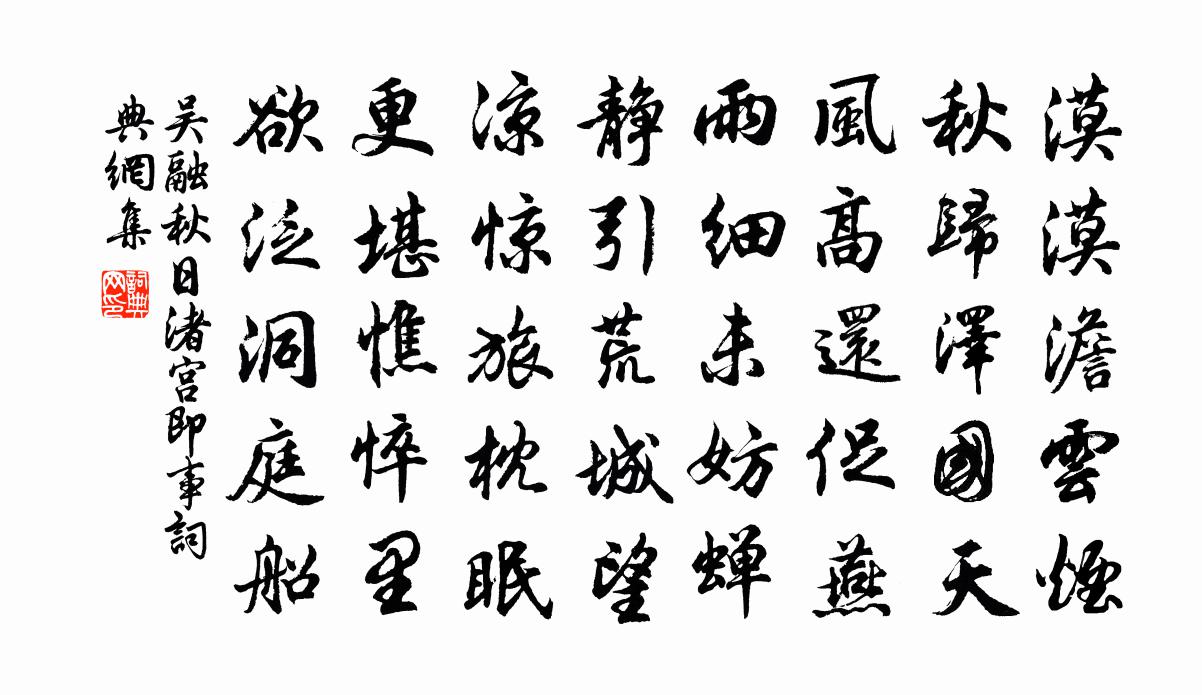 漠漠澹雲煙
秋歸澤國天
風高還促燕
雨细未妨蝉
静引荒城望
凉惊旅枕眠
更堪憔悴里
欲泛洞庭船
吴融秋日渚宫即事詞
典網集
詞典网印